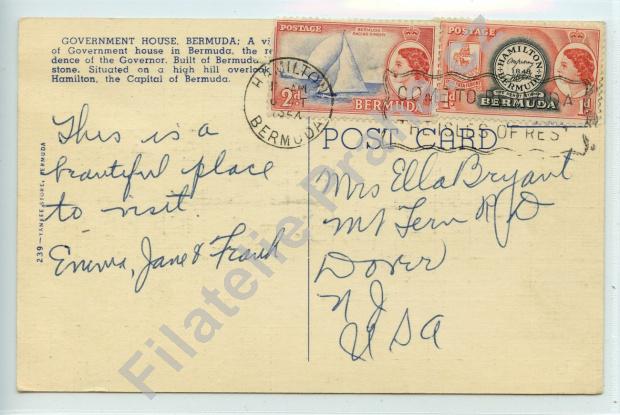 GOVERNMENT HOUSE, BERMUDA; A vi
of Government house in Bermuda, the re
dence of the Governor. Built of Bermuda
stone. Situated on a high hill overloo
Hamilton, the Capital of Bermuda.
POSTAGE
BERMUDA
RACING DINGHY
2½d
BERMUDA
POSTAGE
HAMILTON
BERMUDA
1848
BERMUDA
HAMILTON
AM
BERMUDA
COME TO BERMUDA
THE ISLES OF REST
POST CARD
This is a
beautiful place
to visit
Emma, Jane & Frank
Mrs Ella Bryant
Mt Fern RD
Dover
NJ
USA
239—YANKEE STORE, BERMUDA
Filatelie Prague